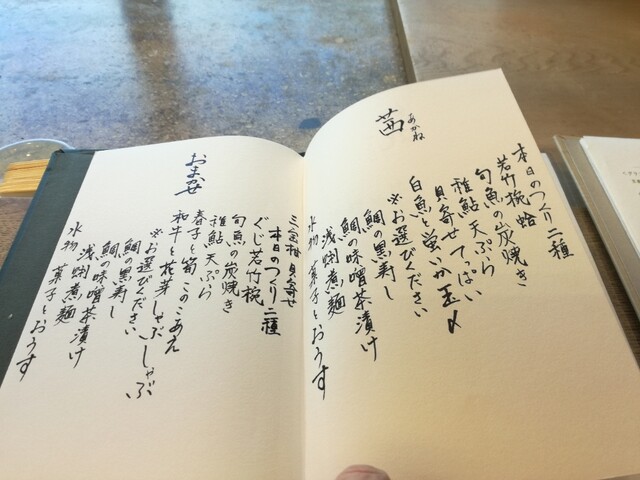 茜
あかね
本日のつくり二種
若竹椀 蛤
旬魚の炭焼き
稚鮎天ぷら
貝寄せてっぱい
白魚と蛍いか玉〆
※お選びください
鯛の黒寿し
鯛の味噌茶漬け
浅蜊煮麺
水物 菓子とおうす
おまかせ
三宝柑 貝寄せ
本日のつくり二種
ぐじ若竹椀
旬魚の炭焼き
稚鮎天ぷら
春子と筍 このこあえ
和牛と花芽しゃぶしゃぶ
※お選びください
鯛の黒寿し
鯛の味噌茶漬け
浅蜊煮麺
水物 菓子とおうす